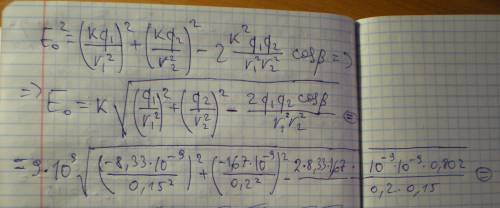 E₀² = (kq₁/r₁²)² + (kq₂/r₂²)² − 2 k²q₁q₂/r₁²r₂² cosβ =>
=> E₀ = k √((q₁/r₁²)² + (q₂/r₂²)² − 2q₁q₂cosβ/r₁²r₂²) =
= 9·10⁹ √((−8,33·10⁻⁹/0,15²)² + (−167·10⁻⁹/0,2²)² − 2·8,33·167·10⁻⁹·10⁻⁹·0,802/0,2·0,15) =